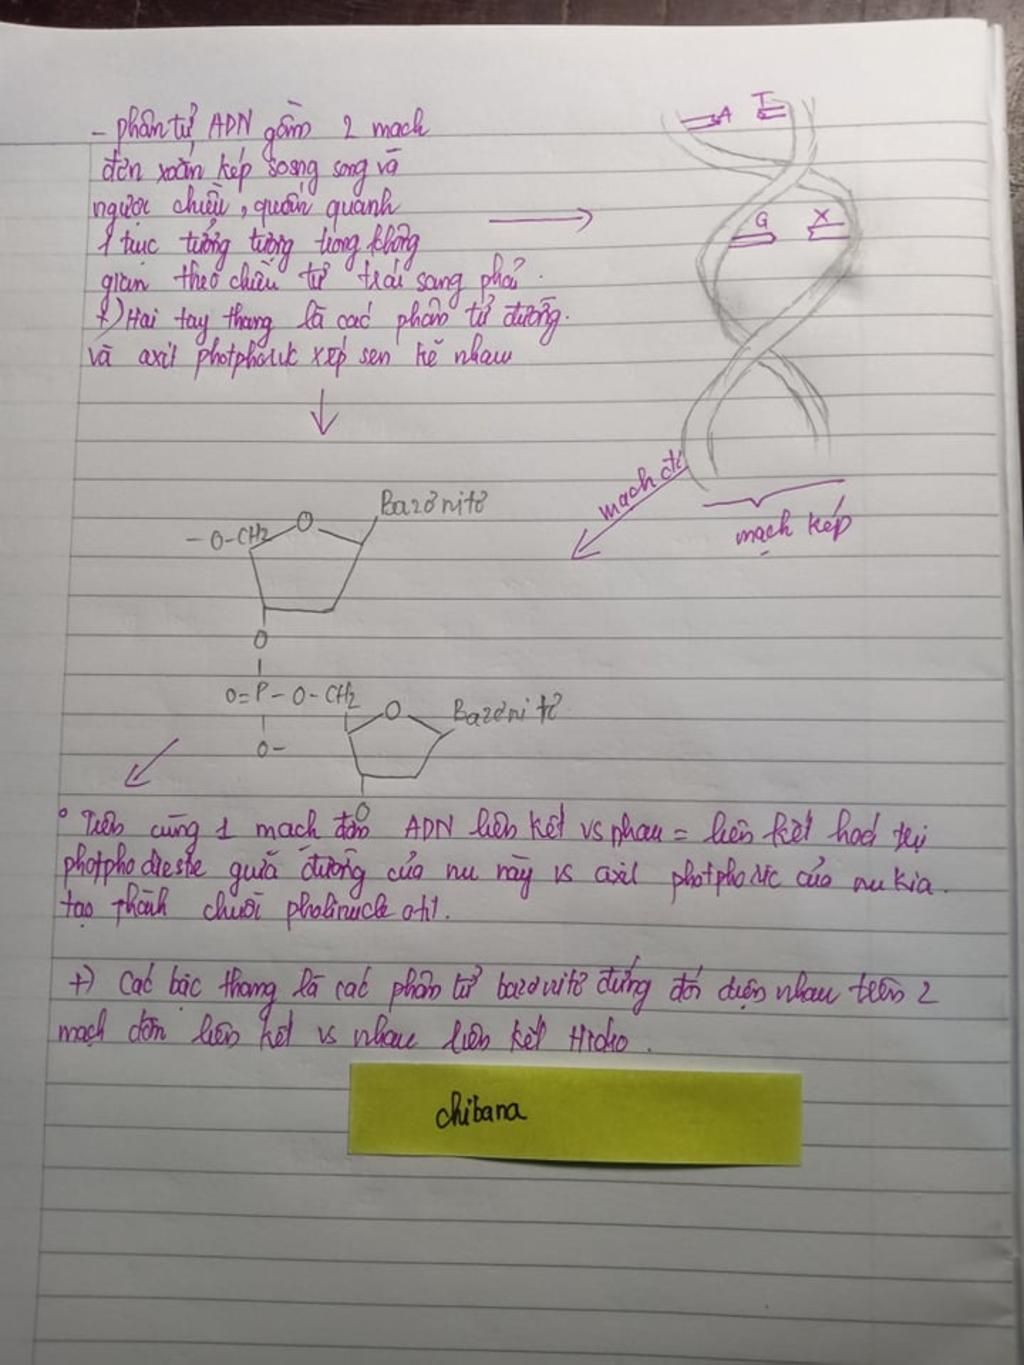 - phân tử ADN gồm 2 mạch
đơn xoắn kép soang song và
ngược chiều, quấn quanh
1 trục tưởng tượng trong không
gian theo chiều từ trái sang phả.
+) Hai tay thang là các phân tử đường.
và axit photphoric xếp sen kẽ nhau
A T
G X
mạch đơ
mạch kép
Bazơnitơ
- O-CH2 O
O
O=P-O-CH2 O Bazơnitơ
O-
O
° Trên cùng 1 mạch đơn ADN liên kết vs nhau = liên kết hoá trị
photphodieste giữa đường của nu này vs axit photphoric của nu kia.
tạo thành chuỗi pholinucleotit.
+) Các bậc thang là các phân tử bazơnitơ đứng đối diện nhau trên 2
mạch đơn liên kết vs nhau liên kết Hidro.
chibana